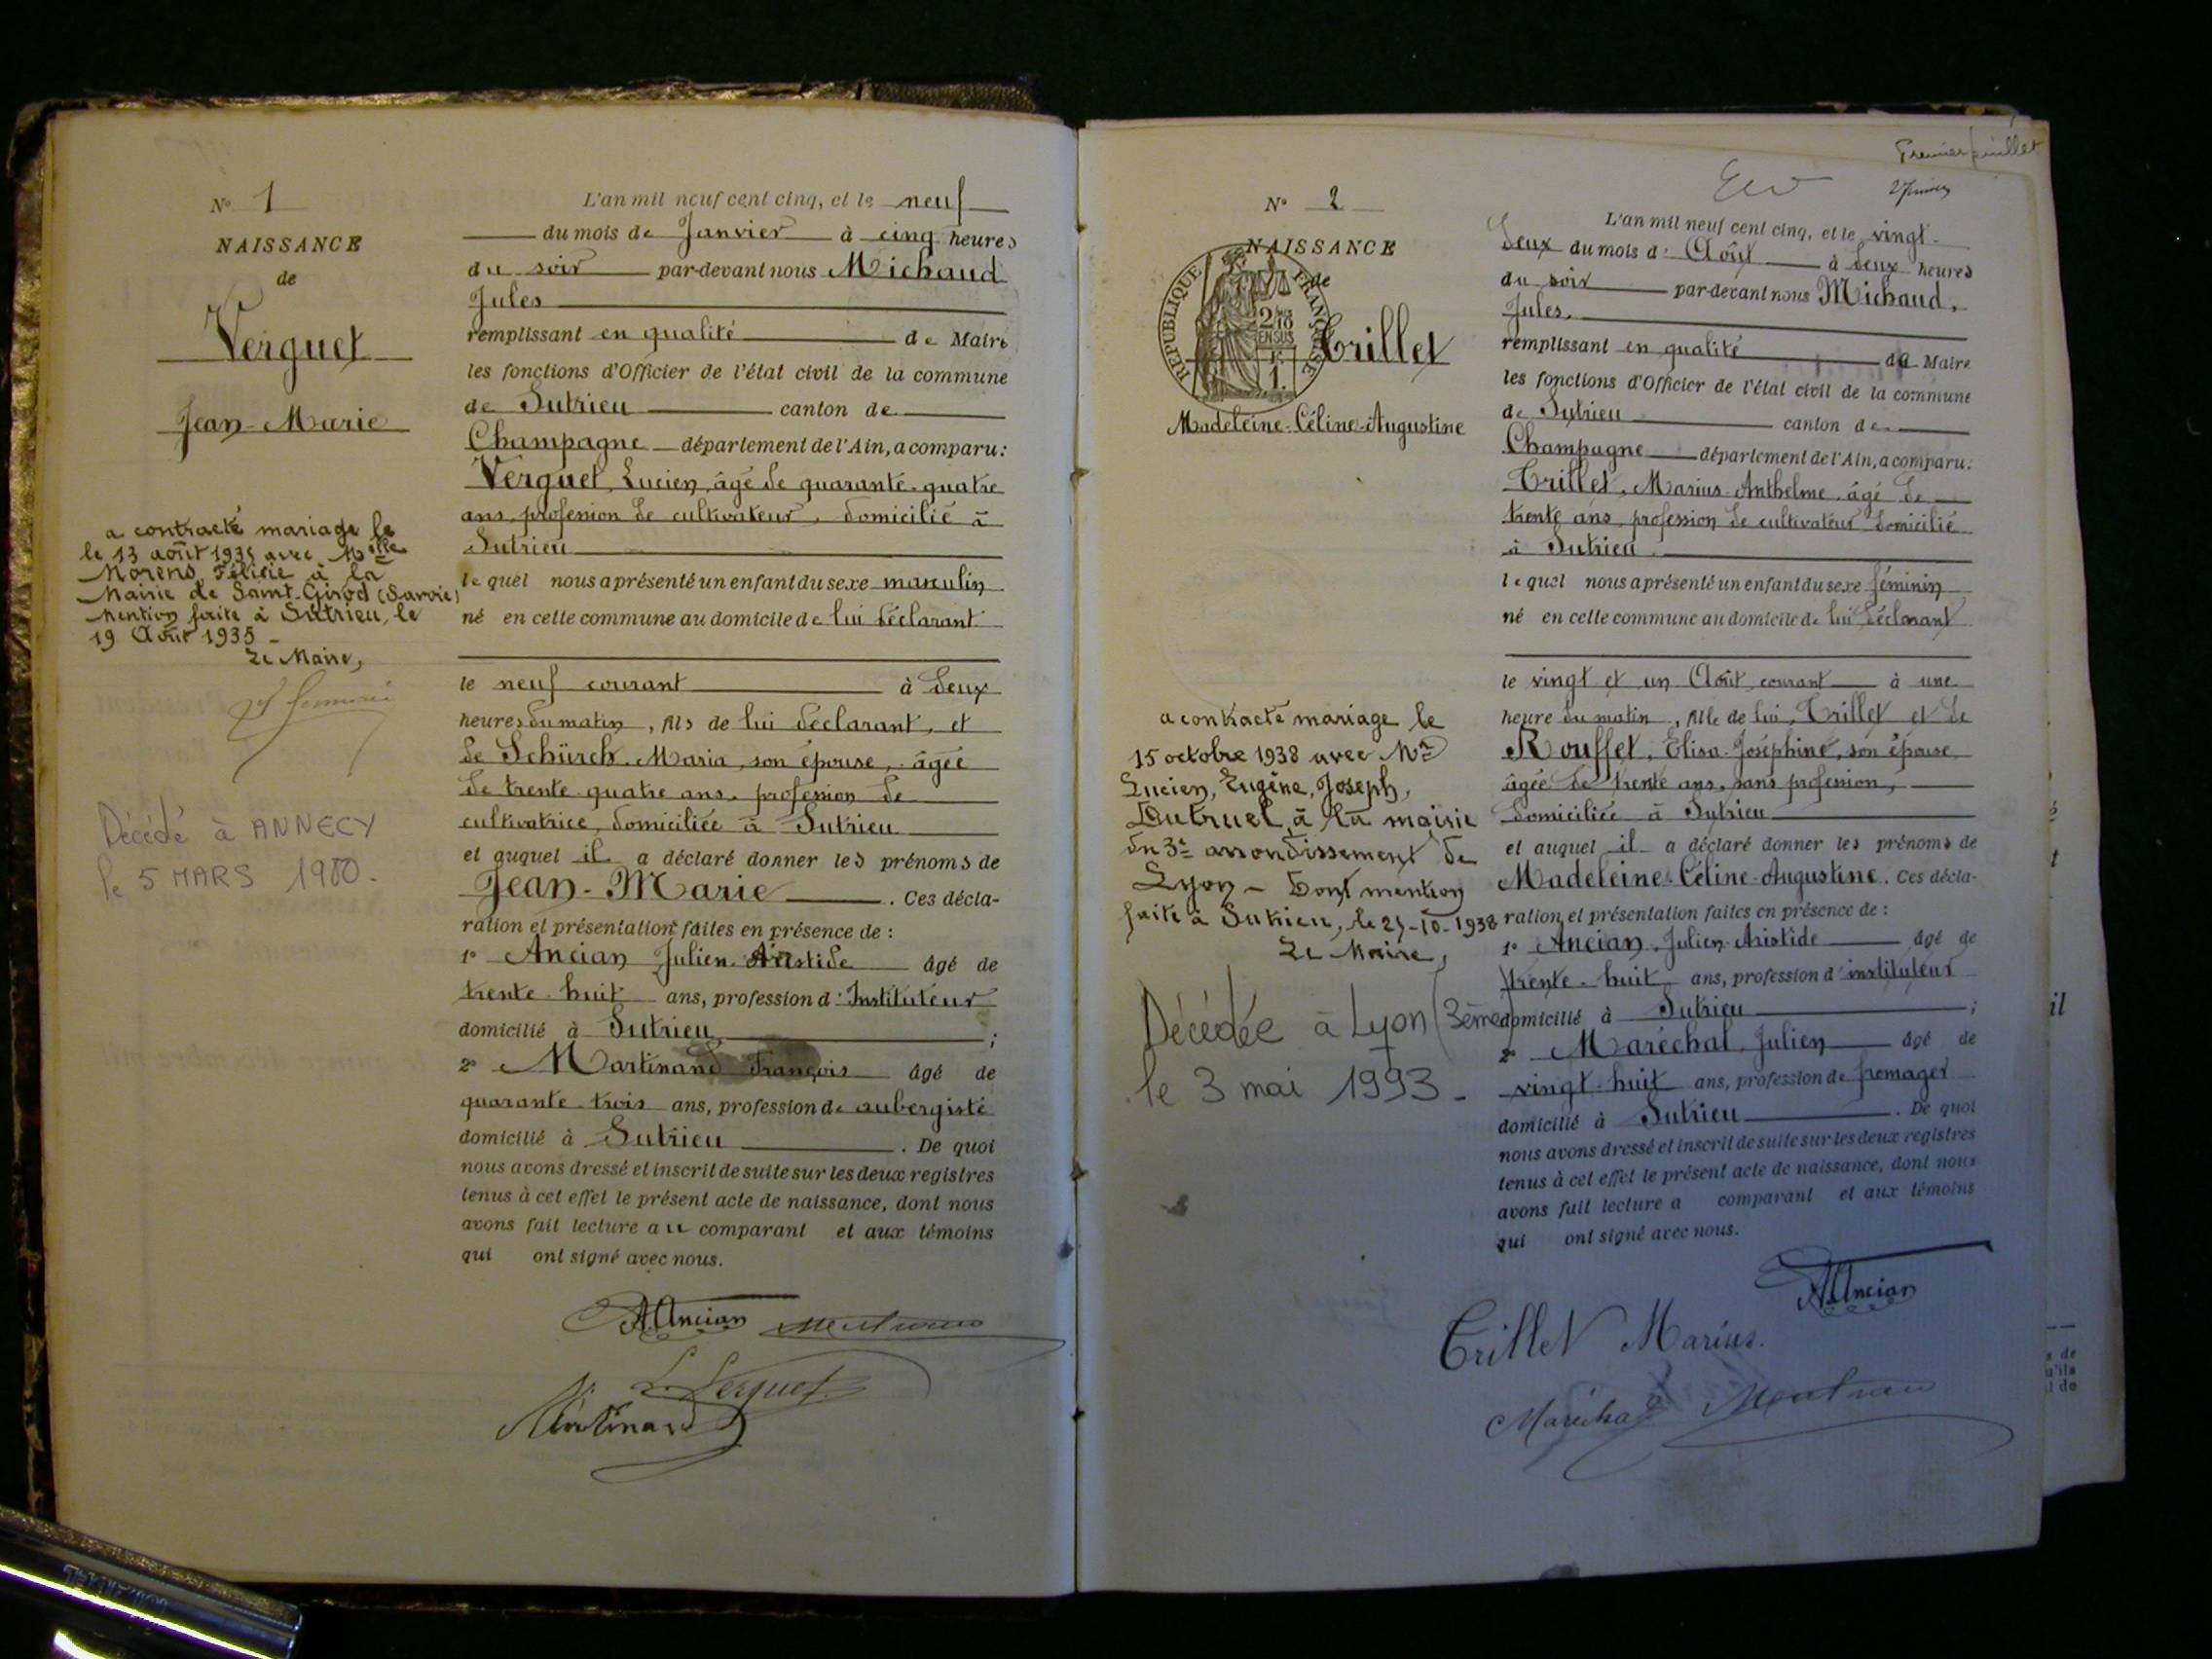 N° 1
NAISSANCE
de
Verguet
Jean-Marie
a contracté mariage le
le 13 août 1935 avec Melle
Morens, Félicie à la
Mairie de Saint-Girod (Savoie)
mention faite à Sutrieu, le
19 Août 1935 -
Le Maire,
Décédé à ANNECY
le 5 MARS 1980.
L'an mil neuf cent cinq, et le neuf
du mois de Janvier à cinq heures
du soir par-devant nous Michaud
Jules
remplissant en qualité de Maire
les fonctions d'Officier de l'état civil de la commune
de Sutrieu canton de
Champagne département de l'Ain, a comparu:
Verguet, Lucien, âgé de quarante-quatre
ans, profession de cultivateur, domicilié à
Sutrieu
lequel nous a présenté un enfant du sexe masculin
né en cette commune au domicile de lui déclarant
le neuf courant à deux
heures du matin, fils de lui déclarant, et
de Schürch Maria, son épouse, âgée
de trente-quatre ans, profession de
cultivatrice, domiciliée à Sutrieu
et auquel il a déclaré donner les prénoms de
Jean-Marie. Ces décla-
ration et présentation faites en présence de :
1° Ancian Julien Aristide âgé de
trente-huit ans, profession d'Instituteur
domicilié à Sutrieu ;
2° Martinand François âgé de
quarante-trois ans, profession de aubergiste
domicilié à Sutrieu. De quoi
nous avons dressé et inscrit de suite sur les deux registres
tenus à cet effet le présent acte de naissance, dont nous
avons fait lecture au comparant et aux témoins
qui ont signé avec nous.
A. Ancian
L. Verguet
Martinand
Premier feuillet
N° 2
NAISSANCE
de
REPUBLIQUE FRANÇAISE
2/10 EN SUS
1 F.
Trillet
Madeleine-Céline-Augustine
a contracté mariage le
15 octobre 1938 avec Mr
Lucien, Eugène, Joseph,
Dutruel, à la mairie
du 3e arrondissement de
Lyon - Dont mention
faite à Sutrieu, le 21-10-1938
Le Maire,
Décédée à Lyon (3ème)
le 3 mai 1993 -
L'an mil neuf cent cinq, et le vingt-
deux du mois d'Août à deux heures
du soir par-devant nous Michaud,
Jules.
remplissant en qualité de Maire
les fonctions d'Officier de l'état civil de la commune
de Sutrieu canton de
Champagne département de l'Ain, a comparu:
Trillet, Marius-Anthelme, âgé de
trente ans, profession de cultivateur domicilié
à Sutrieu
lequel nous a présenté un enfant du sexe féminin
né en cette commune au domicile de lui déclarant
le vingt et un Août courant à une
heure du matin, fille de lui, Trillet et de
Rouffet, Elisa-Joséphine, son épouse
âgée de trente ans, sans profession,
domiciliée à Sutrieu
et auquel il a déclaré donner les prénoms de
Madeleine-Céline-Augustine. Ces décla-
ration et présentation faites en présence de :
1° Ancian, Julien-Aristide âgé de
trente-huit ans, profession d'instituteur
domicilié à Sutrieu ;
2° Maréchal, Julien âgé de
vingt-huit ans, profession de fromager
domicilié à Sutrieu. De quoi
nous avons dressé et inscrit de suite sur les deux registres
tenus à cet effet le présent acte de naissance, dont nous
avons fait lecture a comparant et aux témoins
qui ont signé avec nous.
A. Ancian
Trillet Marius.
Maréchal